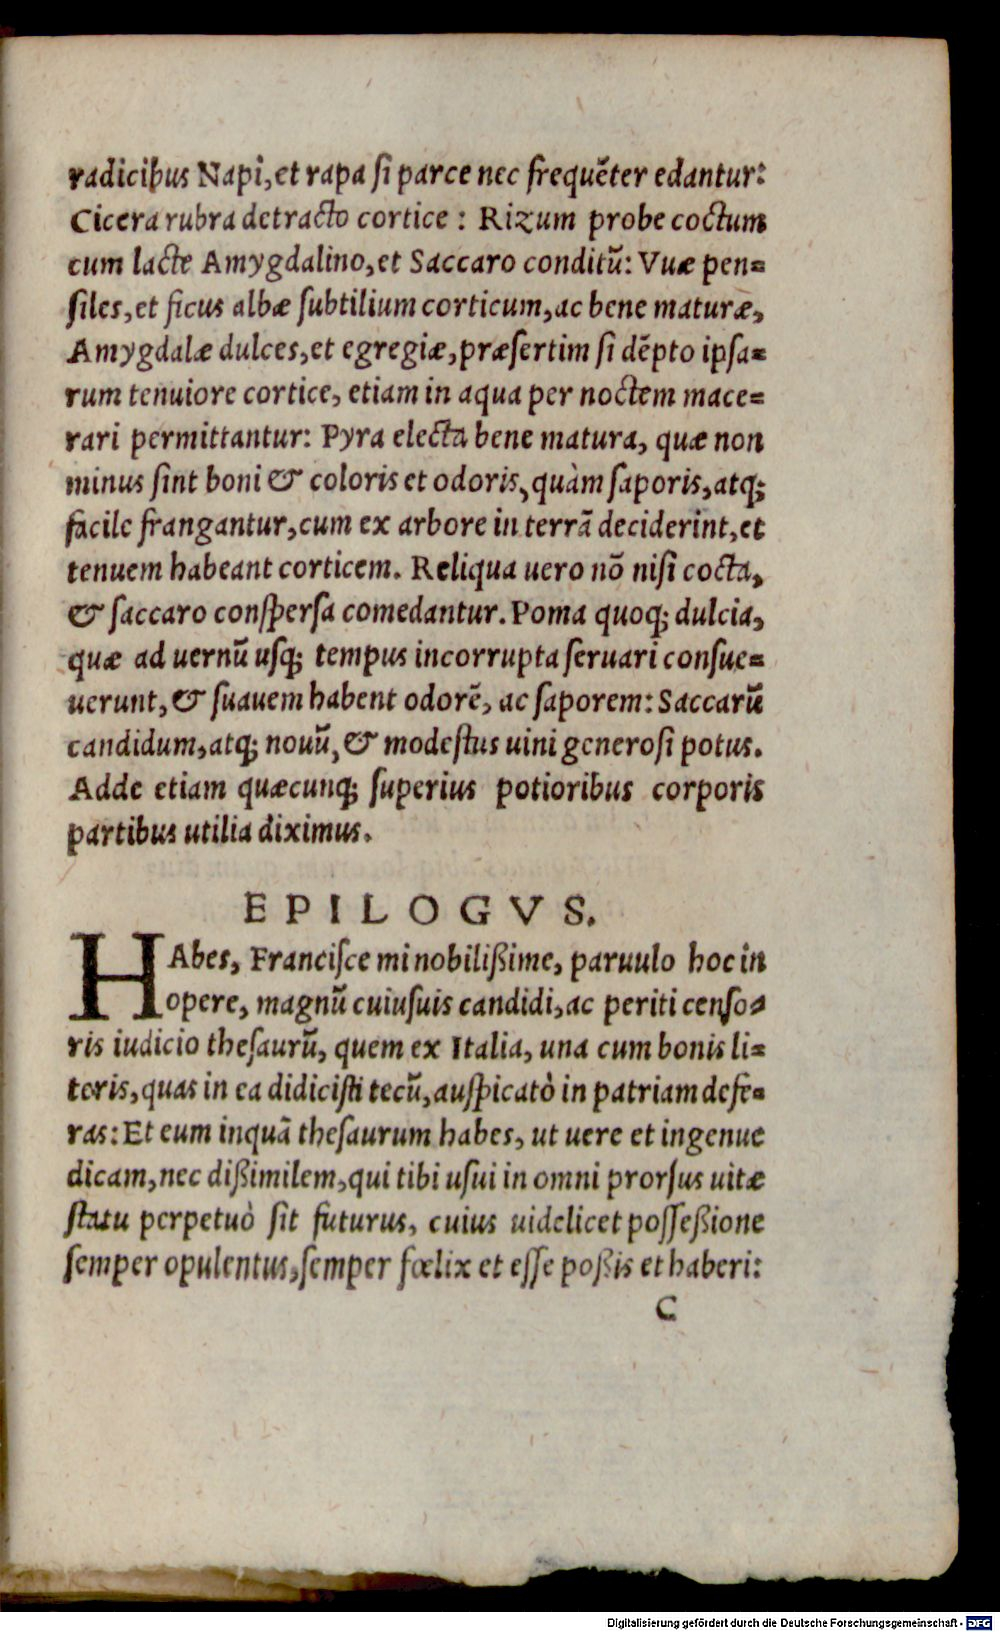 radicibus Napi, et rapa ſi parce nec frequẽter edantur:
Cicera rubra detracto cortice : Rizum probe coctum
cum lacte Amygdalino, et Saccaro conditũ: Vuæ pen=
ſiles, et ficus albæ ſubtilium corticum, ac bene maturæ,
Amygdalæ dulces, et egregiæ, præſertim ſi dẽpto ipſa=
rum tenuiore cortice, etiam in aqua per noctem mace=
rari permittantur: Pyra electa bene matura, quæ non
minus ſint boni & coloris et odoris, quàm ſaporis, atq;
facile frangantur, cum ex arbore in terrã deciderint, et
tenuem habeant corticem. Reliqua uero nõ niſi cocta,
& ſaccaro conſperſa comedantur. Poma quoq; dulcia,
quæ ad uernũ uſq; tempus incorrupta ſeruari conſue=
uerunt, & ſuauem habent odorẽ, ac ſaporem: Saccarũ
candidum, atq; nouũ, & modeſtus uini generoſi potus.
Adde etiam quæcunq; ſuperius potioribus corporis
partibus utilia diximus.
EPILOGVS.
HAbes, Franciſce mi nobilißime, paruulo hoc in
opere, magnũ cuiuſuis candidi, ac periti cenſo=
ris iudicio theſaurũ, quem ex Italia, una cum bonis li=
teris, quas in ea didiciſti tecũ, auſpicatò in patriam defe=
ras: Et eum inquã theſaurum habes, ut uere et ingenue
dicam, nec dißimilem, qui tibi uſui in omni prorſus uitæ
ſtatu perpetuò ſit futurus, cuius uidelicet poſſeßione
ſemper opulentus, ſemper fœlix et eſſe poßis et haberi:
C
Digitalisierung gefördert durch die Deutsche Forschungsgemeinschaft - DFG